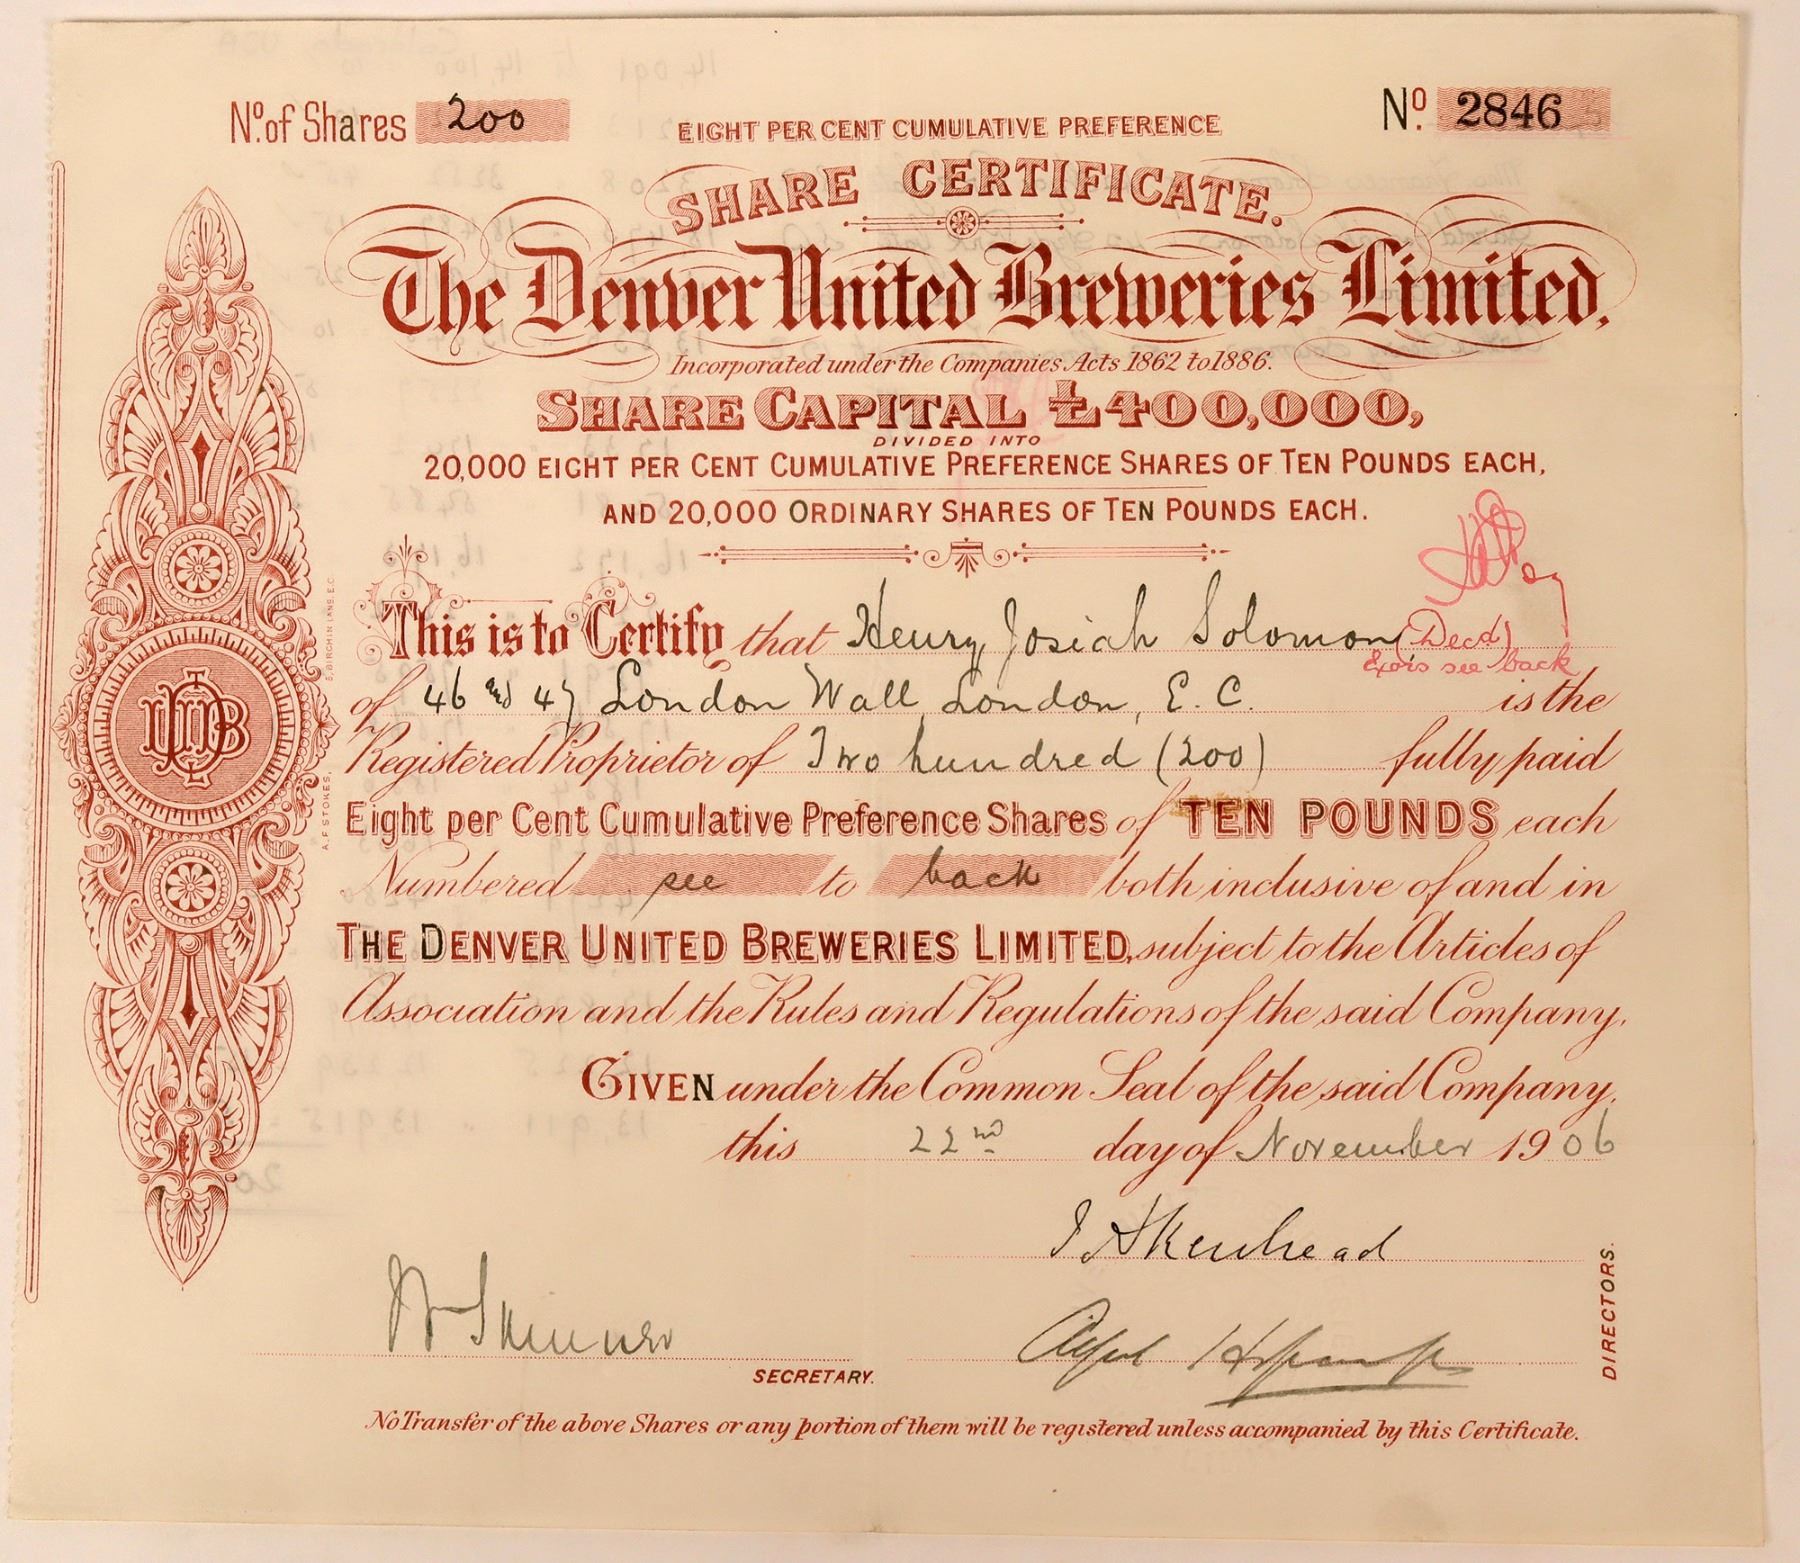 No. of Shares 200
No. 2846
EIGHT PER CENT CUMULATIVE PREFERENCE
SHARE CERTIFICATE.
The Denver United Breweries Limited,
Incorporated under the Companies Acts 1862 to 1886.
SHARE CAPITAL £400,000,
DIVIDED INTO
20,000 EIGHT PER CENT CUMULATIVE PREFERENCE SHARES OF TEN POUNDS EACH,
AND 20,000 ORDINARY SHARES OF TEN POUNDS EACH.
This is to Certify that Henry Josiah Solomon (Decd)
Exors see back
of 46 and 47 London Wall, London, E. C. is the
Registered Proprietor of Two hundred (200) fully paid
Eight per Cent Cumulative Preference Shares of TEN POUNDS each
Numbered see to back both inclusive of and in
THE DENVER UNITED BREWERIES LIMITED, subject to the Articles of
Association and the Rules and Regulations of the said Company.
GIVEN under the Common Seal of the said Company,
this 22nd day of November 1906
Skinner
SECRETARY.
DIRECTORS.
No Transfer of the above Shares or any portion of them will be registered unless accompanied by this Certificate.
A. F. STOKES, 5, BIRCHIN LANE, E.C.